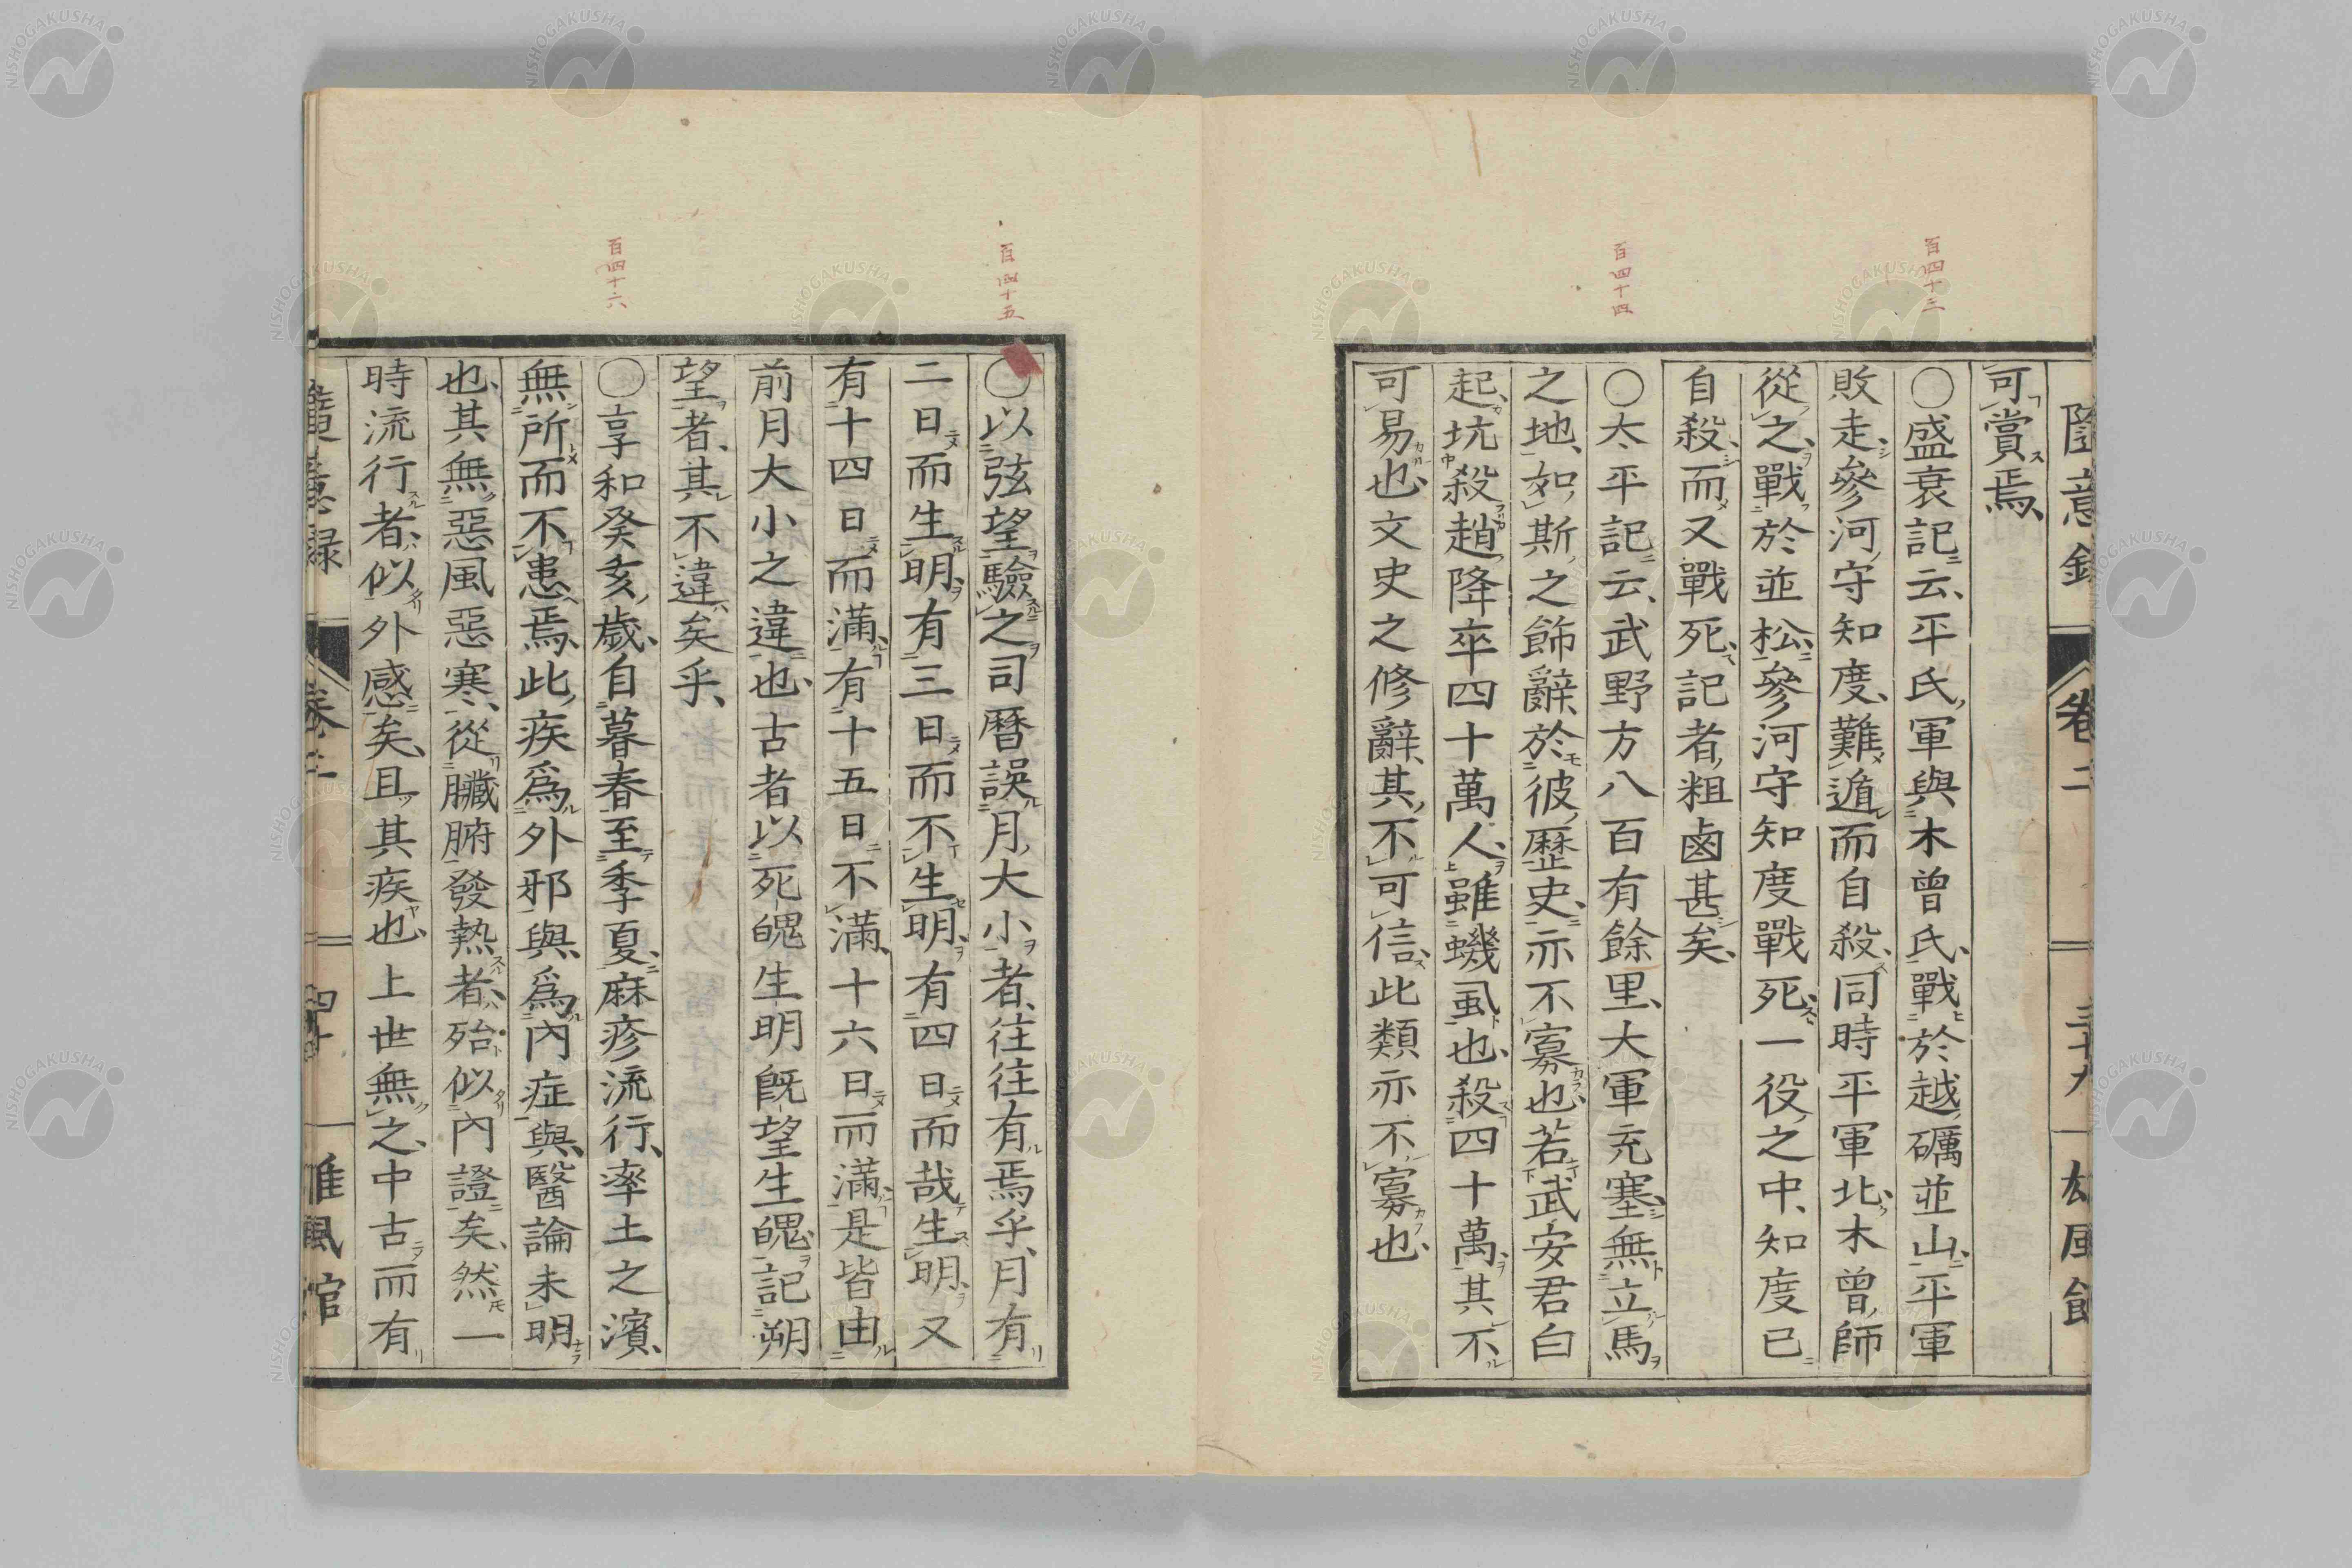 百四十三
百四十四
隨意錄
卷二
三十九
雄風館
可賞焉、
〇盛衰記云、平氏軍與木曾氏、戰於越礪並山、平軍
敗走、參河守知度、難遁而自殺、同時平軍北、木曾師
從之、戰於並松、參河守知度戰死、一役之中、知度已
自殺、而又戰死、記者粗鹵甚矣、
〇太平記云、武野方八百有餘里、大軍充塞、無立馬
之地、如斯之飾辭、於彼歷史、亦不寡也、若武安君白
起、坑殺趙降卒四十萬人、雖蟣虱也、殺四十萬、其不
可易也、文史之修辭、其不可信、此類亦不寡也、
百四十五
百四十六
〇以弦望驗之、司曆誤月大小者、往往有焉乎、月有
二日而生明、有三日而不生明、有四日而哉生明、又
有十四日而滿、有十五日不滿、十六日而滿、是皆由
前月大小之違也、古者以死魄生明旣望生魄、記朔
望者、其不違矣乎、
〇享和癸亥歲、自暮春至季夏、麻疹流行、率土之濱、
無所而不患焉、此疾爲外邪與、爲內症與、醫論未明
也、其無惡風惡寒、從臟腑發熱者、殆似內證矣、然一
時流行者、似外感矣、且其疾也、上世無之、中古而有
隨意錄
卷二
四十
雄風館